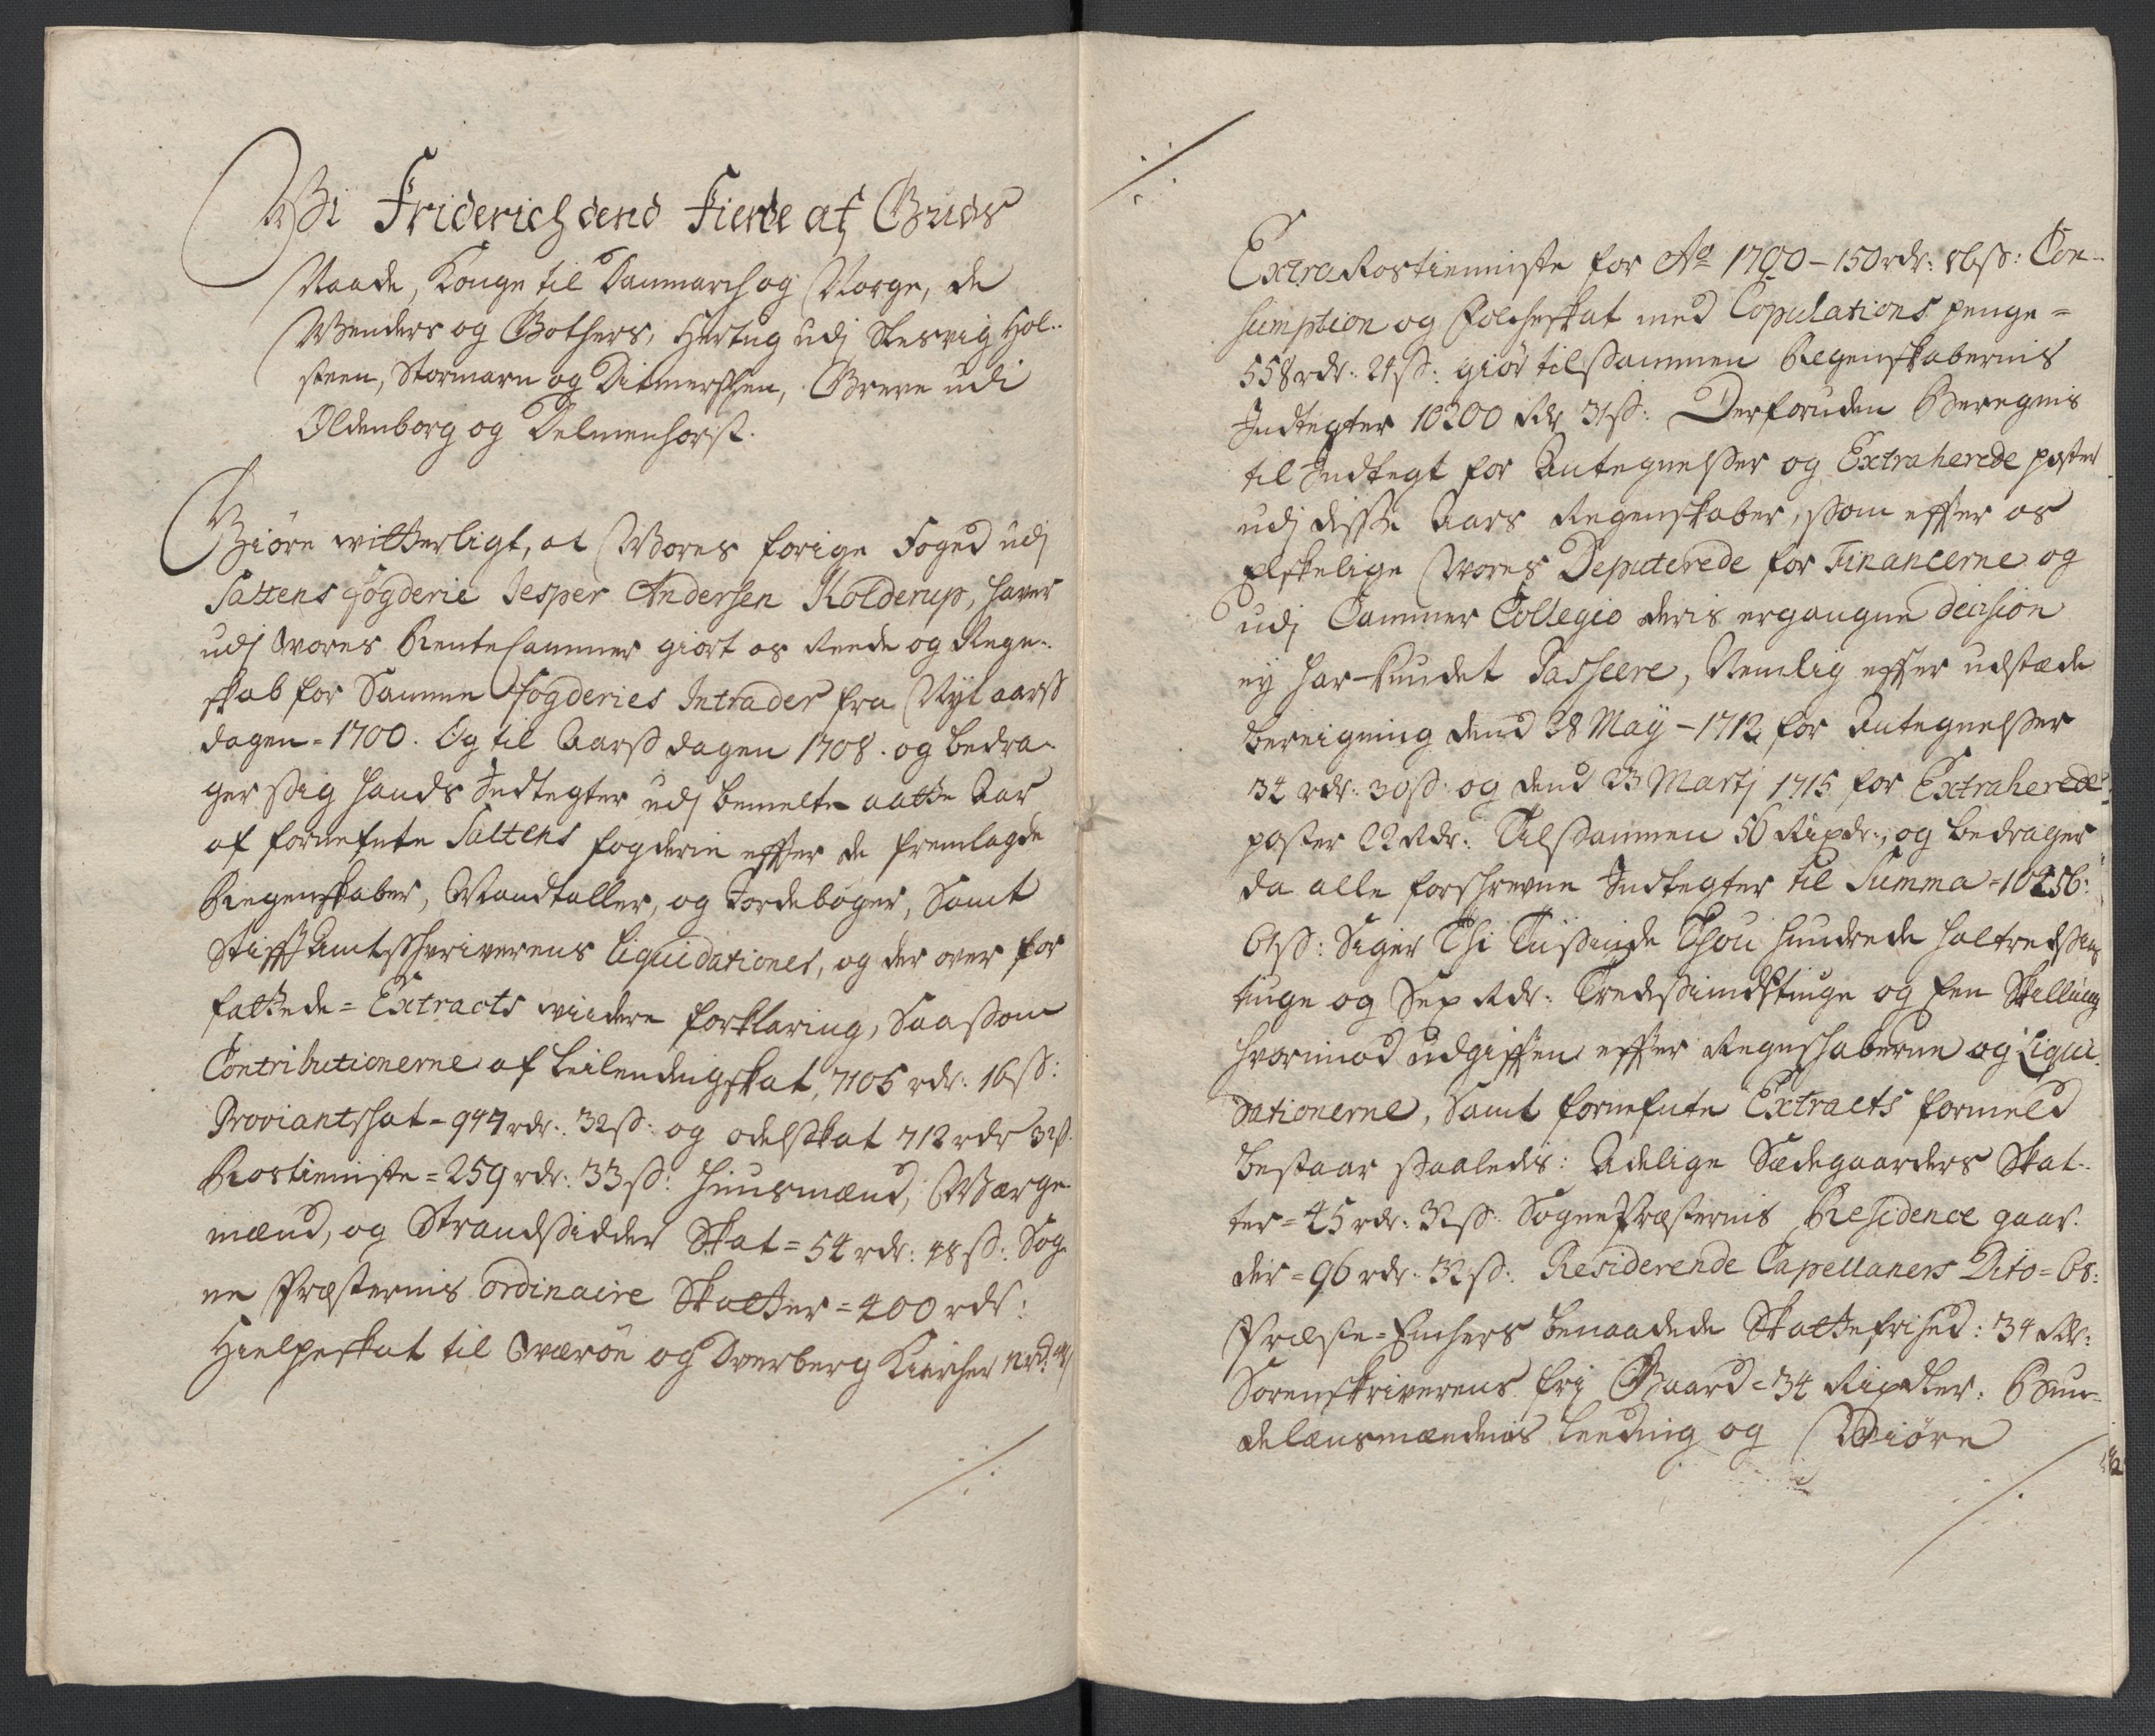 Wi Friderich dend Fierde af Guds
Naade, Konge til Danmarch og Norge, de
Wenders og Gothers, Hertug udj Slesvig Hol-
steen, Stormarn og Ditmerschen, Greve udi
Oldenborg og Delmenhorst.
Giöre witterligt, at Wores forige Foged udj
Saltens fogderie Jesper Andersen Kolderup, haver
udj wores Rente Cammer giort os Reede og Rege-
skab for Samme Fogderies Intrader fra Nyt aarss
dagen = 1700. Og til Aarss dagen 1708. og bedra-
ger Sig hands Indtegter udj bemelte aatte Aar
af fornefnte Saltens fogderie effter de fremlagde
Regenskaber, Mandtaller, og Jordebøger, Samt
Stifft Amtsschriverens liqvidationer, og der over for
fattede = Extracts viidere forklaring, Saasom
Contributionerne af Leilendingskat, 7105 rdr: 16 ss:
Proviantskat = 944 rdr: 32 ss: og odelsskat 712 rdr 32 ss.
Rostieniste = 259 rdr: 33 ss: Huusmænd, Værge-
mænd, og Strandsidder Skat = 54 rdr: 48 ss: Sog-
ne Præsternis ordinaire Skatter = 400 rdr:
Hielpeskat til Værøe og Dverberg Kiircher 12 rd:
Extra Rostieniste for Ao 1700 - 150 rdr: 86 ss: Con-
sumption og Folcheskat med Copulations penge =
558 rdr: 24 ss: giør tilsammen Regenskabernis
Indtegter 10200 Rdr 31 ss: Derforuden Beregnis
til Indtegt for Antegnelsser og Extraherede poster
udj disse Aars Regenskaber, som effter os
Elskelige Wores Deputerede for Financerne og
udj Cammer Collegio deris ergangne decision
ey har kundet Passeere, Nemlig effter udstæde
bereigning dend 28 Maÿ - 1712 for Antegnelsser
34 rdr: 30 ss: og dend 23 Martj 1715 for Extraherede
poster 22 Rdr: Tilsammen 56 Rixdr:, og bedrager
da alle forschrevne Indtegter til Summa = 10256:
61 ss: Siger Thi Tusinde Thou hundrede halfredsens
tiuge og Sex Rdr: Tredssindstiuge og Een Skilling
Hvorimod udgifften effter Regnschaberne og Liqvi-
dationerne, Samt fornefnte Extracts formeld
bestaar saaledes: Adelige Sædegaarders Skat-
ter = 45 rdr: 32 ss: Sogne Præsternis Residence gaar-
der = 96 rdr: 32 ss: Residerende Capellaners Dito = 68:
Præste = Enchers benaadede Skattefrihed: 34 Rdr:
Sorenskriverens frj Gaard = 34 Rixdler: Bun-
delensmændenis leeding og Wiøre